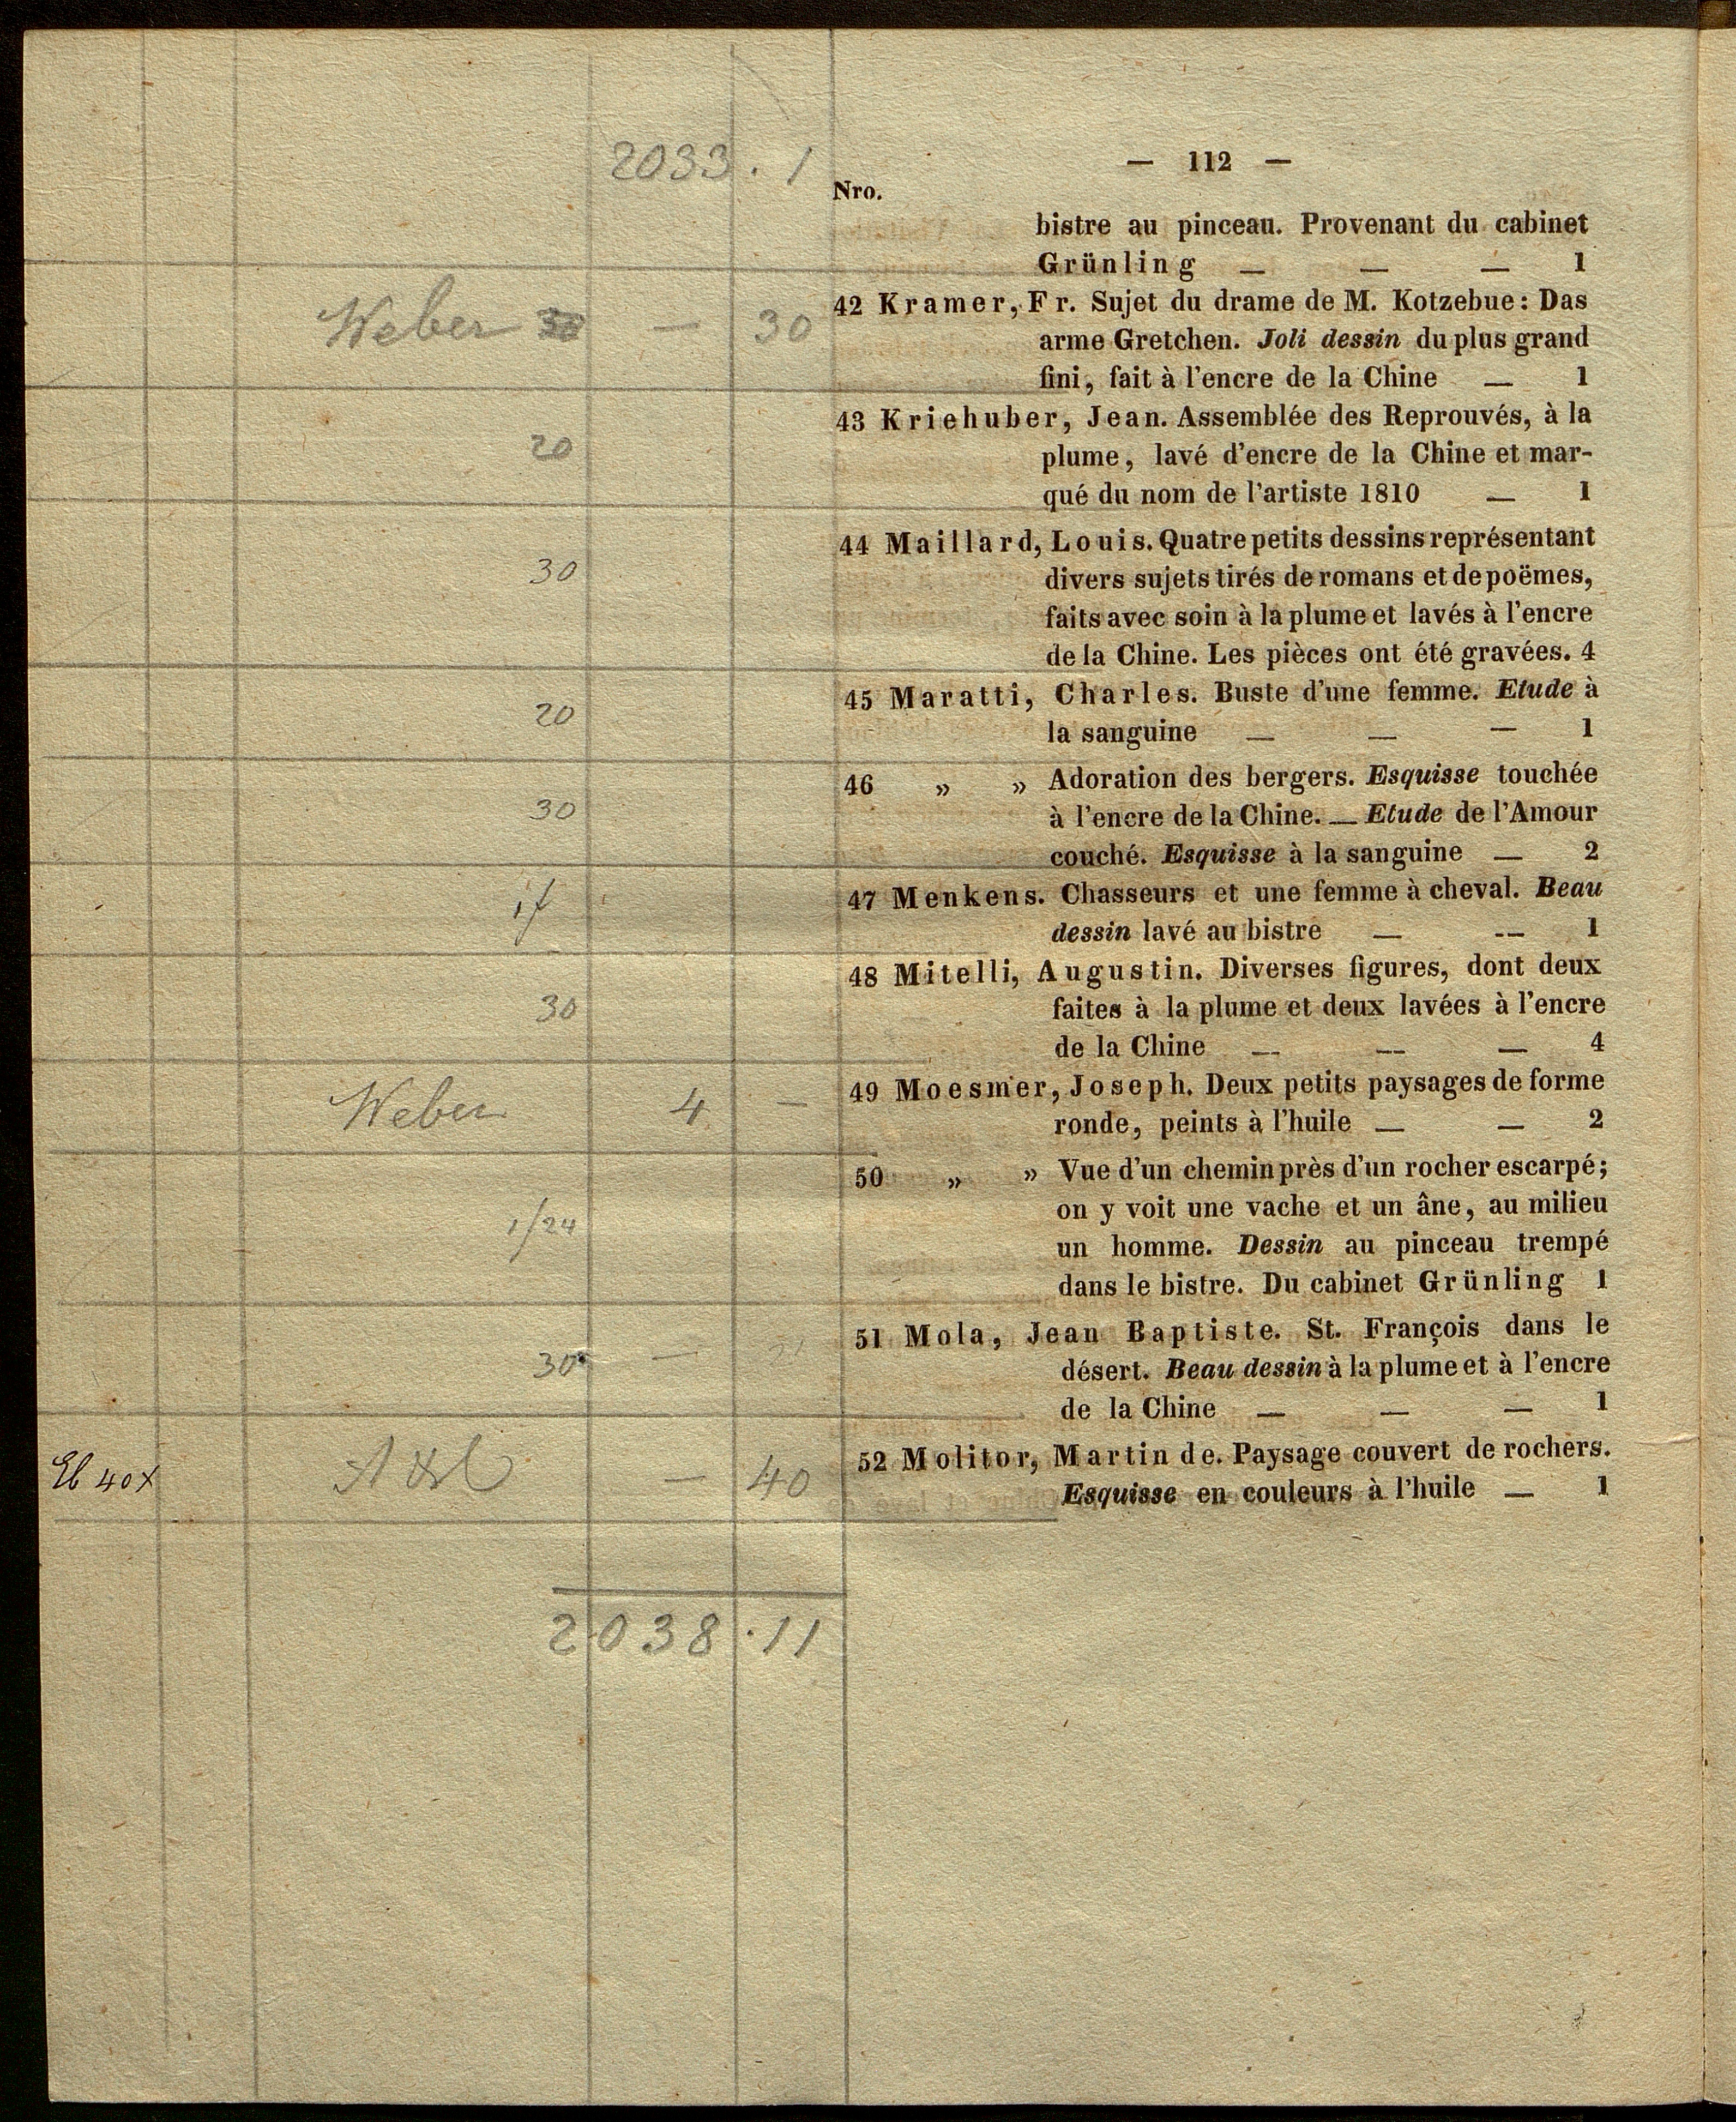 2033 . 1
— 112 —
Nro.
bistre au pinceau. Provenant du cabinet
Grünling — — — 1
Weber 30 — 30
42 Kramer, Fr. Sujet du drame de M. Kotzebue: Das
arme Gretchen. Joli dessin du plus grand
fini, fait à l'encre de la Chine — 1
20
43 Kriehuber, Jean. Assemblée des Reprouvés, à la
plume, lavé d'encre de la Chine et mar-
qué du nom de l'artiste 1810 — 1
30
44 Maillard, Louis. Quatre petits dessins représentant
divers sujets tirés de romans et de poëmes,
faits avec soin à la plume et lavés à l'encre
de la Chine. Les pièces ont été gravées. 4
20
45 Maratti, Charles. Buste d'une femme. Etude à
la sanguine — — — 1
30
46 „ „ Adoration des bergers. Esquisse touchée
à l'encre de la Chine. — Etude de l'Amour
couché. Esquisse à la sanguine — 2
1f
47 Menkens. Chasseurs et une femme à cheval. Beau
dessin lavé au bistre — -- 1
30
48 Mitelli, Augustin. Diverses figures, dont deux
faites à la plume et deux lavées à l'encre
de la Chine — — — 4
Weber 4 —
49 Moesmer, Joseph. Deux petits paysages de forme
ronde, peints à l'huile — — 2
1/24
50 „ „ Vue d'un chemin près d'un rocher escarpé;
on y voit une vache et un âne, au milieu
un homme. Dessin au pinceau trempé
dans le bistre. Du cabinet Grünling 1
30 —
51 Mola, Jean Baptiste. St. François dans le
désert. Beau dessin à la plume et à l'encre
de la Chine — — — 1
40x — 40
52 Molitor, Martin de. Paysage couvert de rochers.
Esquisse en couleurs à l'huile — 1
2038 . 11